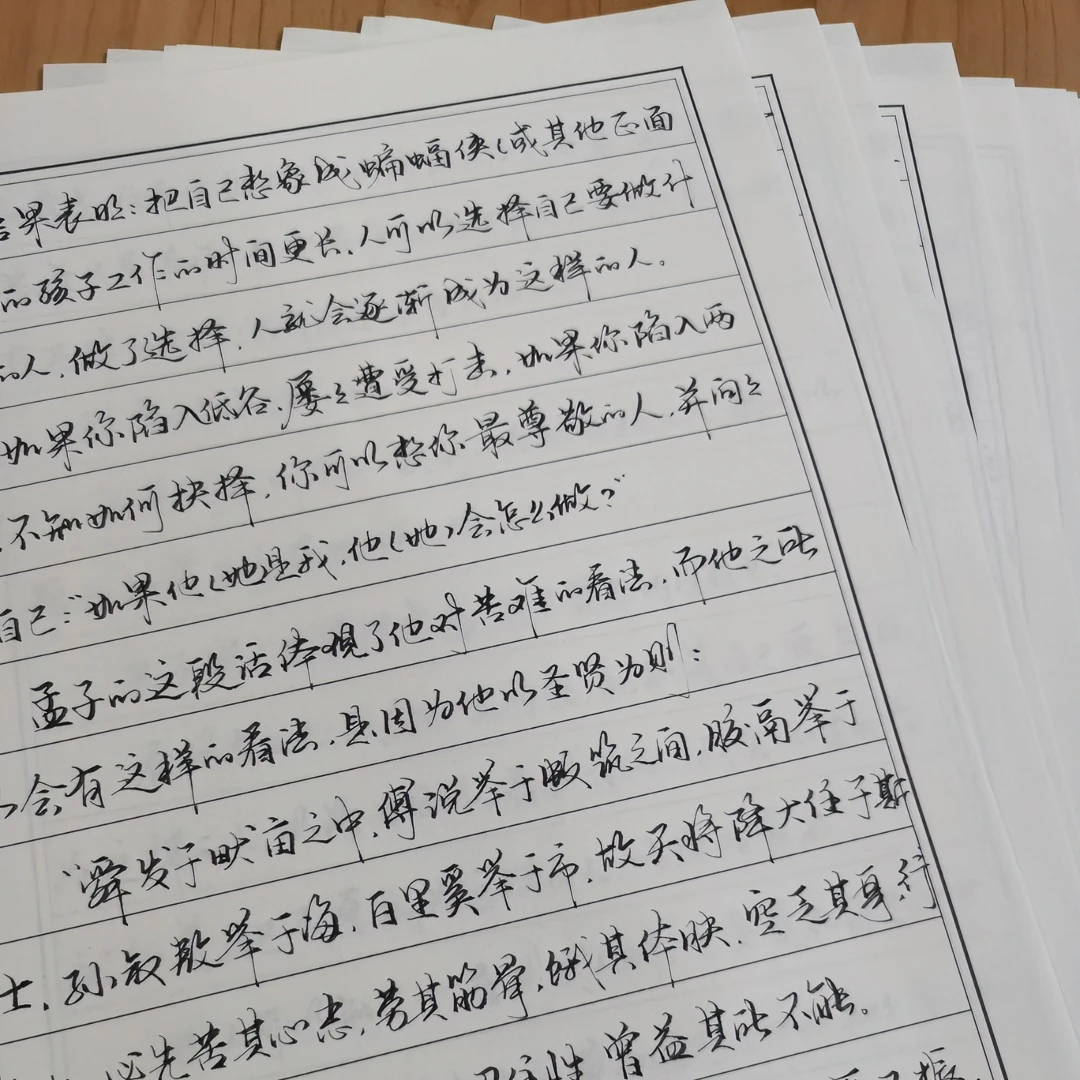 果表明：把自己想象成蝙蝠侠（或其他正面
的孩子工作的时间更长，人可以选择自己要做什
的人，做了选择，人就会逐渐成为这样的人。
如果你陷入低谷，屡屡遭受打击，如果你陷入两
不知如何抉择，你可以想你最尊敬的人，并问问
自己：“如果他（她）是我，他（她）会怎么做？”
孟子的这段话体现了他对苦难的看法，而他之所
以会有这样的看法，是因为他以圣贤为则：
“舜发于畎亩之中，傅说举于版筑之间，胶鬲举于
士，孙叔敖举于海，百里奚举于市，故天将降大任于斯
必先苦其心志，劳其筋骨，饿其体肤，空乏其身，行
性，曾益其所不能。